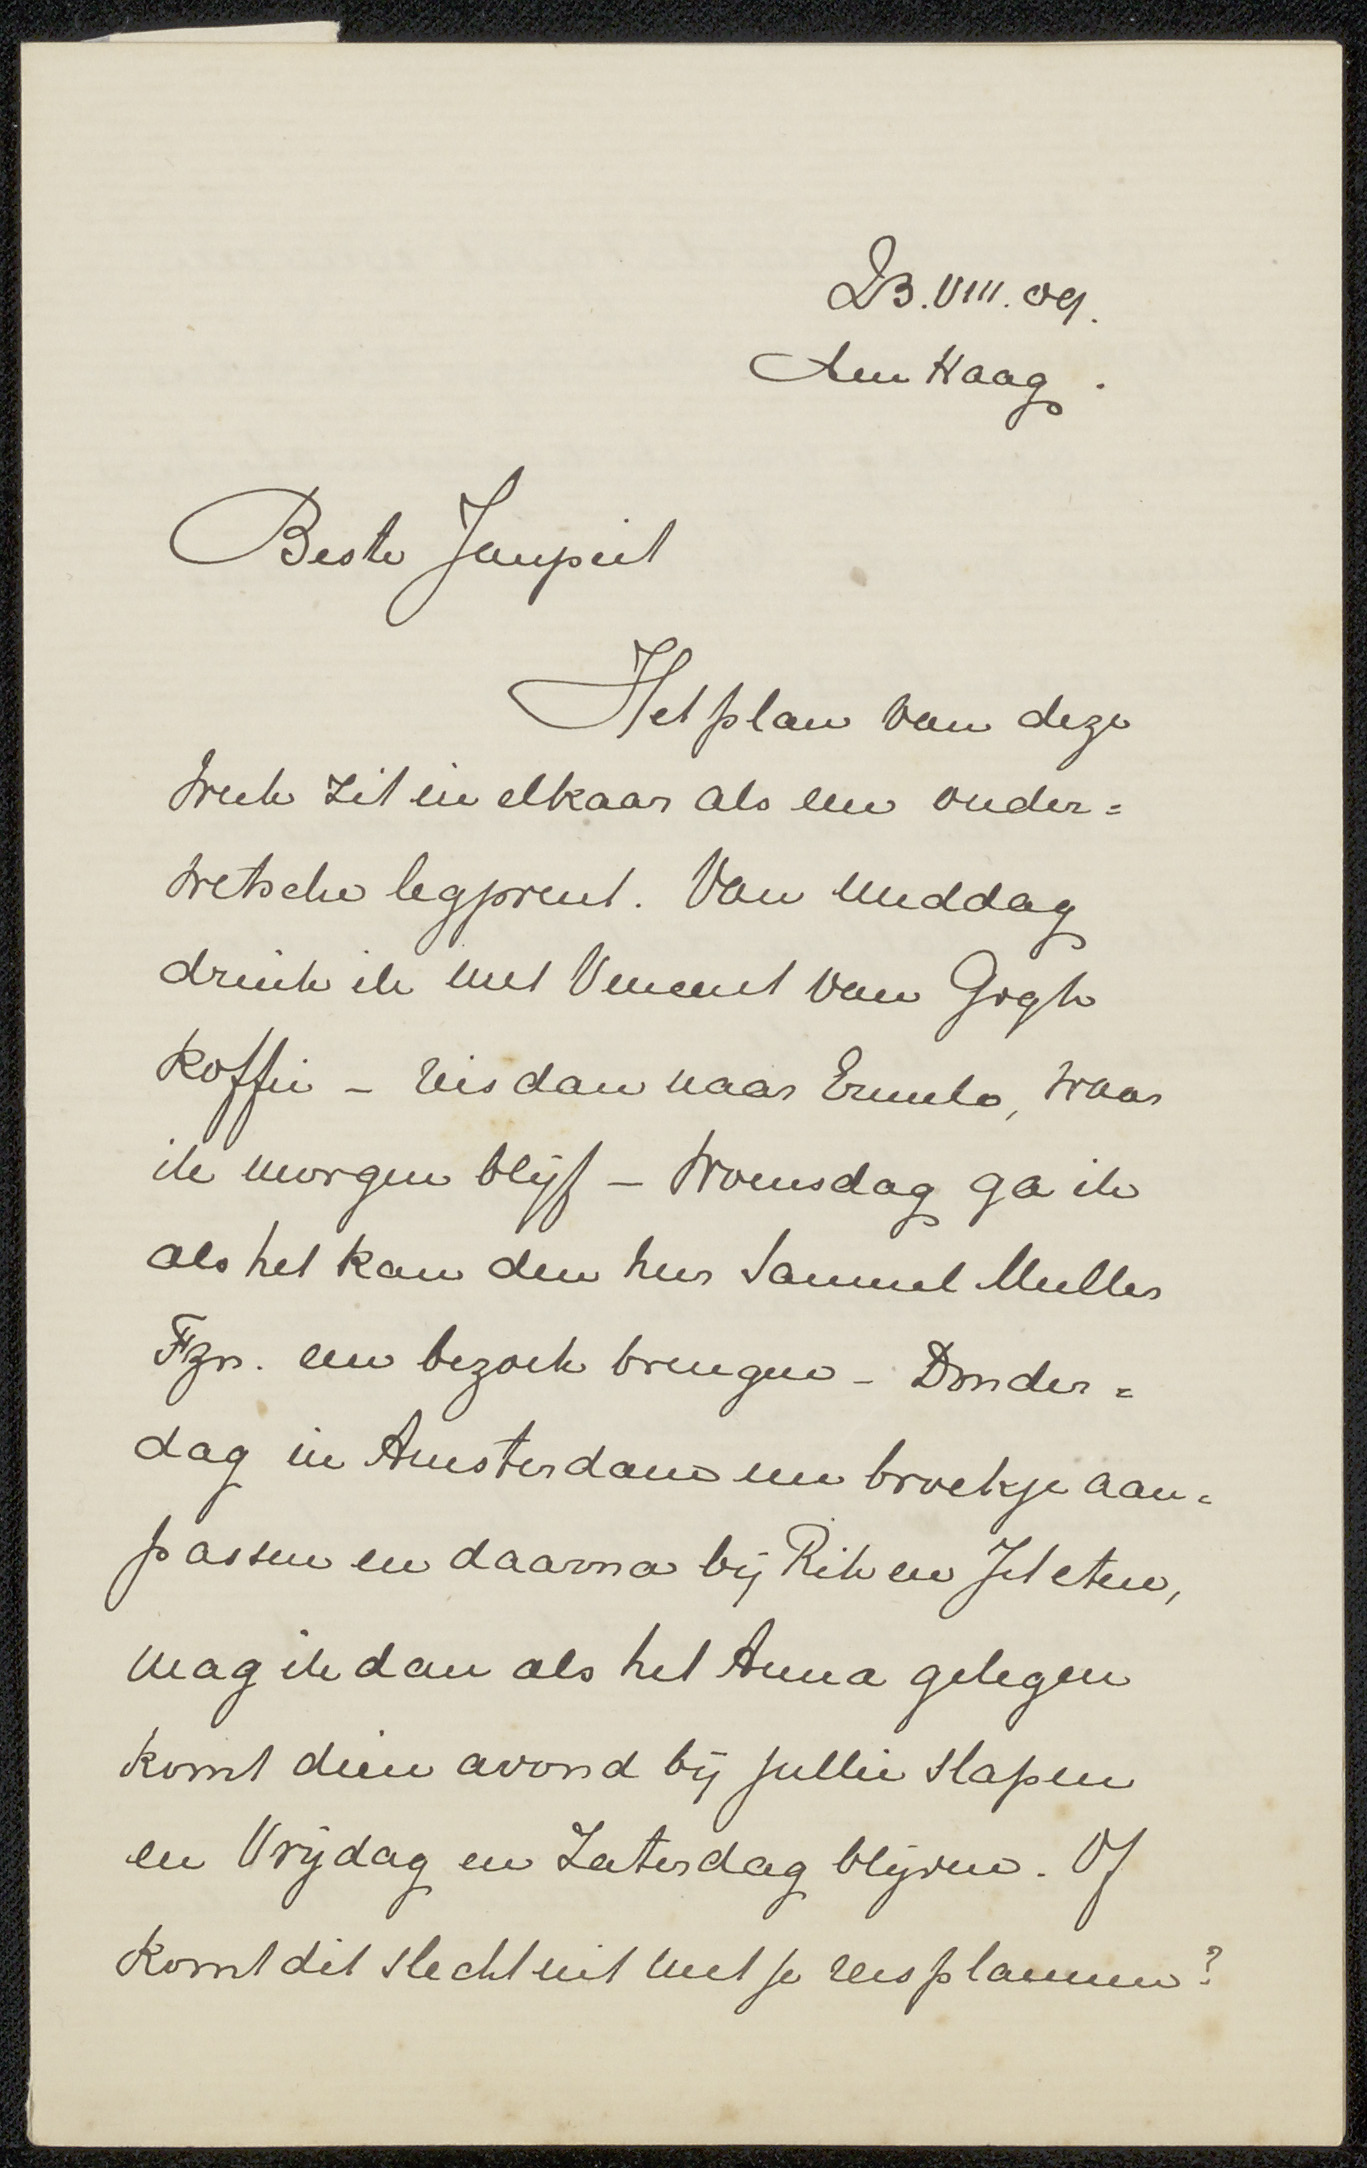 23.VIII.09.
Den Haag.
Beste Janpiet
Het plan van deze
week zit in elkaar als een ouder=
wetsche legprent. Van middag
drink ik met Vincent van Gogh
koffie – reis dan naar Ermelo, waar
ik morgen blijf – Woensdag ga ik
als het kan den heer Samuel Muller
Fzn. een bezoek brengen – Donder=
dag in Amsterdam een broekje aan=
passen en daarna bij Rik en Jet eten,
mag ik dan als het Anna gelegen
komt dien avond bij jullie slapen
en Vrijdag en Zaterdag blijven. Of
komt dit slecht uit met je reisplannen?